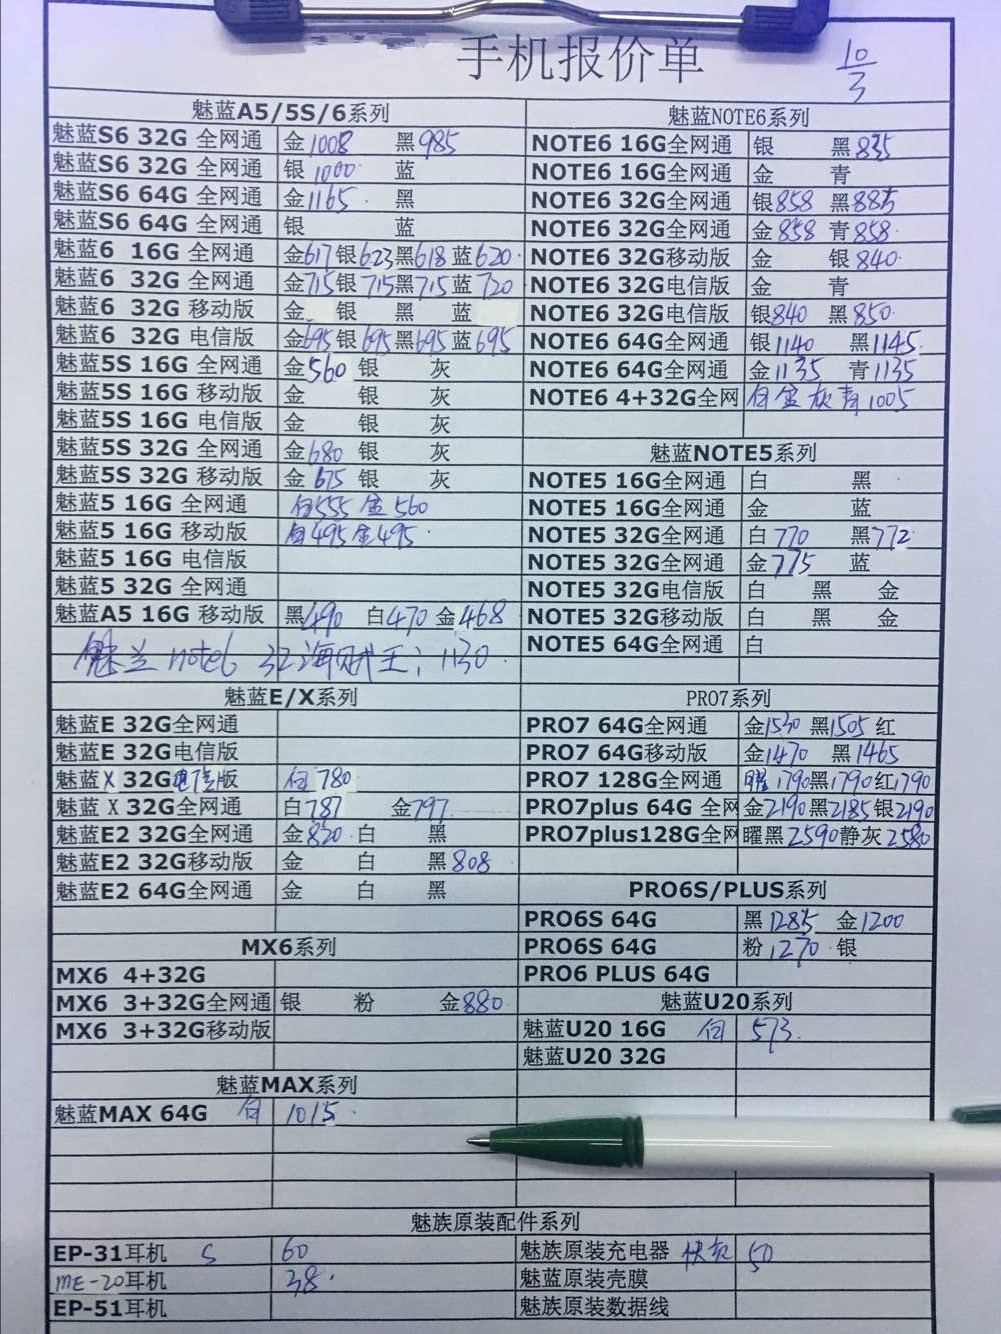 手机报价单
10/3
魅蓝A5/5S/6系列
魅蓝S6 32G 全网通 金1008 黑985
魅蓝S6 32G 全网通 银1000 蓝
魅蓝S6 64G 全网通 金1165 黑
魅蓝S6 64G 全网通 银 蓝
魅蓝6 16G 全网通 金617 银623 黑618 蓝620
魅蓝6 32G 全网通 金715 银715 黑715 蓝720
魅蓝6 32G 移动版 金 银 黑 蓝
魅蓝6 32G 电信版 金695 银695 黑695 蓝695
魅蓝5S 16G 全网通 金560 银 灰
魅蓝5S 16G 移动版 金 银 灰
魅蓝5S 16G 电信版 金 银 灰
魅蓝5S 32G 全网通 金680 银 灰
魅蓝5S 32G 移动版 金675 银 灰
魅蓝5 16G 全网通 白555 金560
魅蓝5 16G 移动版 白495 金495
魅蓝5 16G 电信版
魅蓝5 32G 全网通
魅蓝A5 16G 移动版 黑490 白470 金468
魅兰 note6 32海贼王: 1130
魅蓝E/X系列
魅蓝E 32G全网通
魅蓝E 32G电信版
魅蓝X 32G电信版 白780
魅蓝X 32G全网通 白787 金797
魅蓝E2 32G全网通 金820 白 黑
魅蓝E2 32G移动版 金 白 黑808
魅蓝E2 64G全网通 金 白 黑
MX6系列
MX6 4+32G
MX6 3+32G全网通 银 粉 金880
MX6 3+32G移动版
魅蓝MAX系列
魅蓝MAX 64G 白 1015
魅蓝NOTE6系列
NOTE6 16G全网通 银 黑835
NOTE6 16G全网通 金 青
NOTE6 32G全网通 银858 黑885
NOTE6 32G全网通 金858 青858
NOTE6 32G移动版 金 银840
NOTE6 32G电信版 金 青
NOTE6 32G电信版 银840 黑850
NOTE6 64G全网通 银1140 黑1145
NOTE6 64G全网通 金1135 青1135
NOTE6 4+32G全网 白金灰青1005
魅蓝NOTE5系列
NOTE5 16G全网通 白 黑
NOTE5 16G全网通 金 蓝
NOTE5 32G全网通 白770 黑772
NOTE5 32G全网通 金775 蓝
NOTE5 32G电信版 白 黑 金
NOTE5 32G移动版 白 黑 金
NOTE5 64G全网通 白
PRO7系列
PRO7 64G全网通 金1530 黑1505 红
PRO7 64G移动版 金1470 黑1465
PRO7 128G全网通 1790黑1790红1790
PRO7plus 64G 全网 金2190黑2185银2190
PRO7plus128G全网 曜黑2590静灰2580
PRO6S/PLUS系列
PRO6S 64G 黑1285 金1200
PRO6S 64G 粉1270 银
PRO6 PLUS 64G
魅蓝U20系列
魅蓝U20 16G 白 573
魅蓝U20 32G
魅族原装配件系列
EP-31耳机 S 60
ME-20耳机 38
EP-51耳机
魅族原装充电器 快充 50
魅蓝原装壳膜
魅族原装数据线